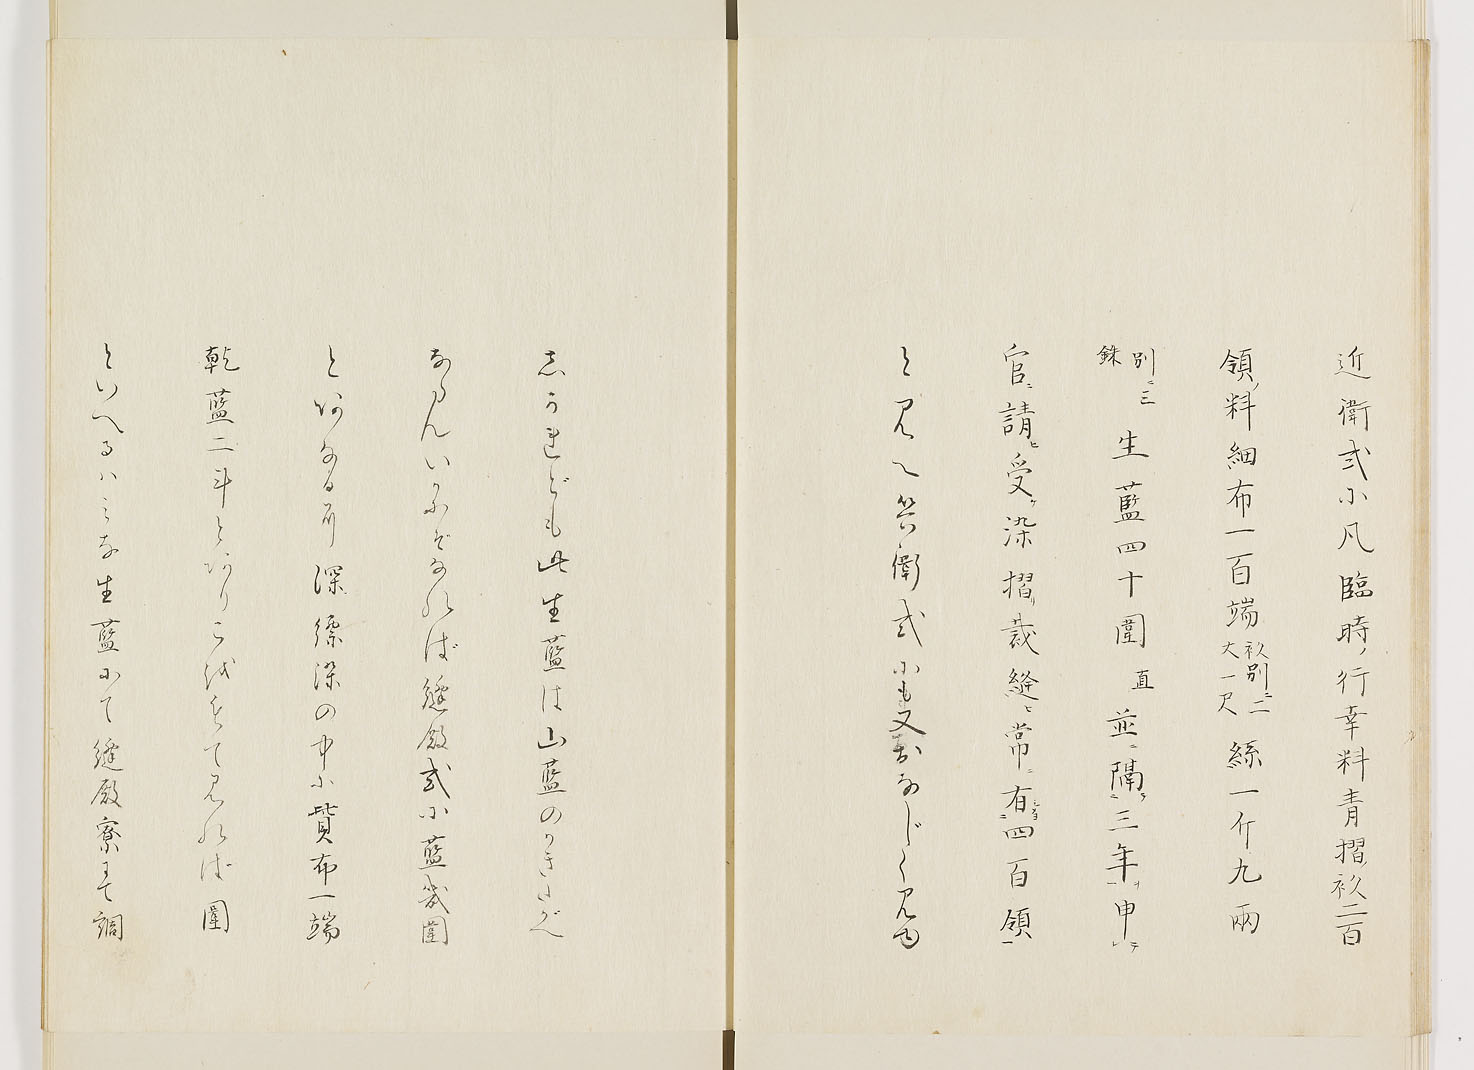 近衛式小凡臨時ノ行幸料青摺衫二百
領ノ料細布一百端 衫別ニ二丈一尺 絲一斤九兩
別ニ三銖 生藍四十圍 直 並ニ隔三年申
官ニ請ヒ受ケ染摺裁縫ヒ常ニ有四百領
と見え兵衛式にも又おなじく見ゆ
志かれども此生藍は山藍のかきざ
なるんいかにぞなれば縫殿式小藍幾圍
とあるなる所深縹染の中に貲布一端
乾藍二斗とありこをもて見れば圍
といへるハみな生藍にて縫殿寮にて調